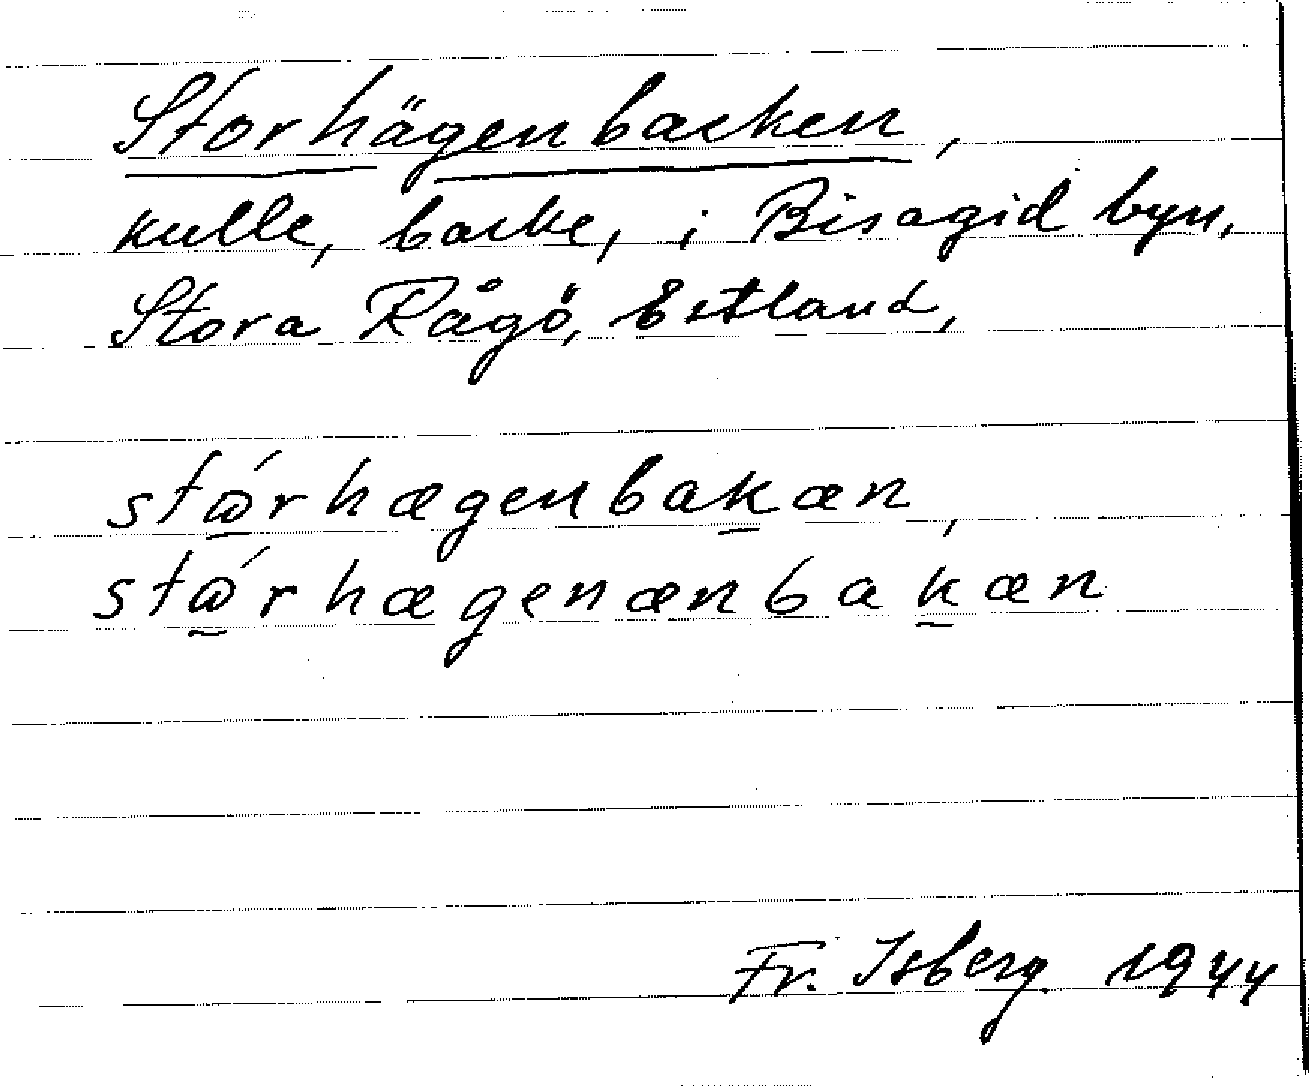 Storhägenbacken,
kulle, backe, i Bisagid byn,
Stora Rågö, Estland,
stώ̲rhægenbak̲æn,
stώ̲rhægenænbak̲æn
Fr. Isberg. 1944